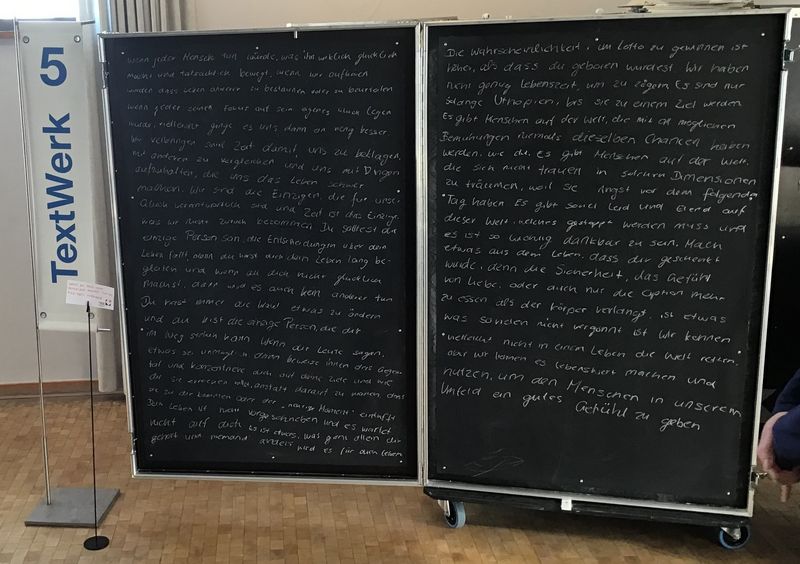 TextWerk 5
Wenn jeder Mensch tun würde, was ihn wirklich glücklich
macht und tatsächlich bewegt, wenn wir aufhören
würden das Leben anderer zu bestaunen oder zu beurteilen
wenn jeder seinen Fokus auf sein eigenes Glück legen
würde, vielleicht ginge es uns dann ein wenig besser
Wir verbringen soviel Zeit damit, uns zu beklagen,
mit anderen zu vergleichen und uns mit Dingen
aufzuhalten, die uns das Leben schwer
machen. Wir sind die Einzigen, die für unser
Glück verantwortlich sind und Zeit ist das Einzige
was wir nicht zurück bekommen. Du solltest die
einzige Person sein, die Entscheidungen über dein
Leben fällt, denn du wirst dich dein Leben lang be-
gleiten und wenn du dich nicht glücklich
machst, dann wird es auch kein anderer tun
Du hast immer die Wahl etwas zu ändern
und du bist die einzige Person, die dir
im Weg stehen kann Wenn dir Leute sagen,
etwas sei unmöglich dann beweise ihnen das Gegen-
teil und konzentriere dich auf deine Ziele und wie
du sie erreichen willst, anstatt darauf zu warten dass
sie zu dir kommen oder der "richtige Moment" eintrifft
Dein Leben ist nicht vorgeschrieben und es wartet
nicht auf dich Es ist etwas, was ganz allein dir
gehört und niemand anders wird es für dich leben
Die Wahrscheinlichkeit, im Lotto zu gewinnen ist
höher, als dass du geboren wurdest Wir haben
nicht genug Lebenszeit, um zu zögern Es sind nur
solange Uthopien, bis sie zu einem Ziel werden
Es gibt Menschen auf der Welt, die mit all möglichen
Bemühungen niemals dieselben Chancen haben
werden, wie du. Es gibt Menschen auf der Welt,
die sich nicht trauen in solchen Dimensionen
zu träumen, weil sie Angst vor dem folgenden
Tag haben Es gibt soviel Leid und Elend auf
dieser Welt, welches gestoppt werden muss und
es ist so wichtig dankbar zu sein. Mach
etwas aus dem Leben, dass dir geschenkt
wurde, denn die Sicherheit, das Gefühl
von Liebe, oder auch nur die Option mehr
zu essen als der Körper verlangt, ist etwas
was so vielen nicht vergönnt ist Wir können
vielleicht nicht in einem Leben die Welt retten,
aber wir können es lebenswert machen und
nutzen, um den Menschen in unserem
Umfeld ein gutes Gefühl zu geben